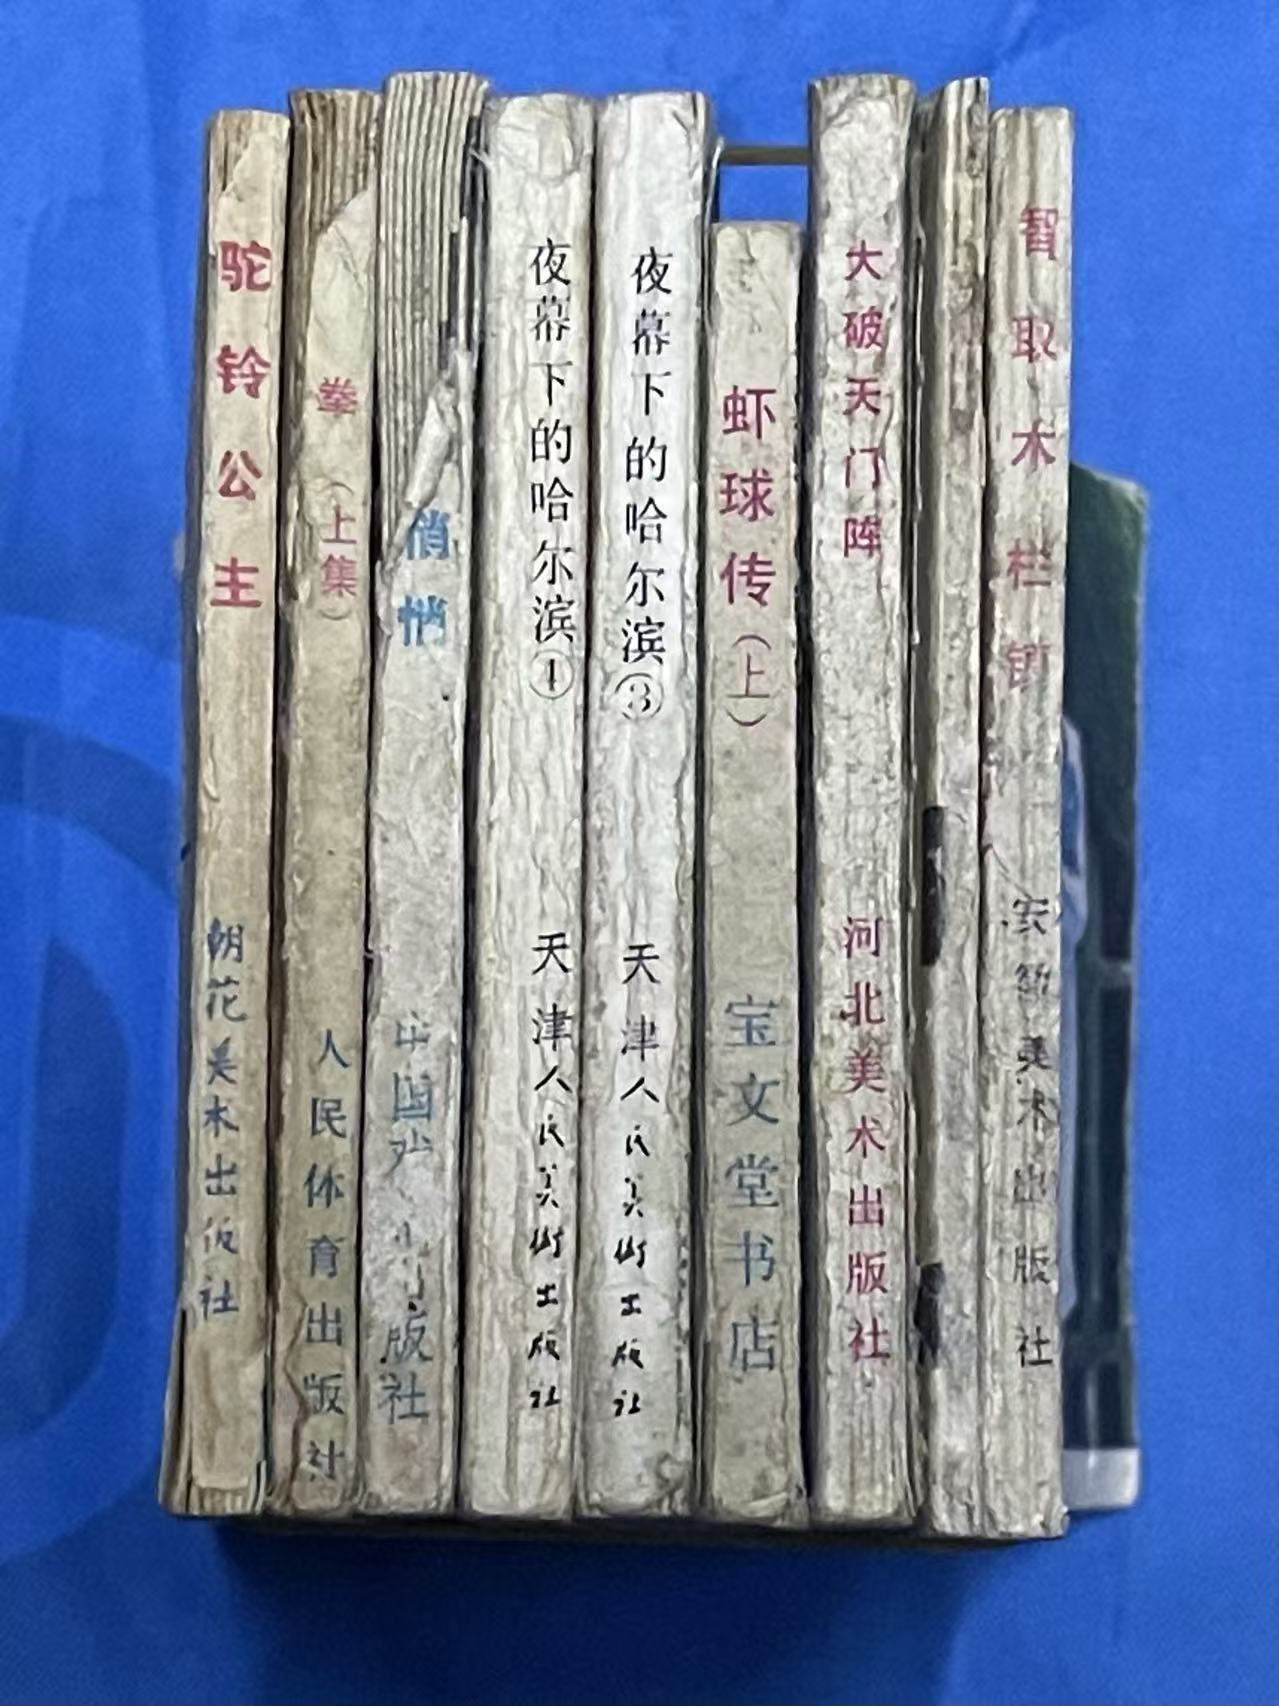 驼铃公主
朝花美术出版社
拳（上集）
人民体育出版社
俏悄
中国戏 出版社
夜幕下的哈尔滨①
天津人民美術出版社
夜幕下的哈尔滨③
天津人民美術出版社
虾球传（上）
宝文堂书店
大破天门阵
河北美术出版社
智取木栏镇
安徽美术出版社